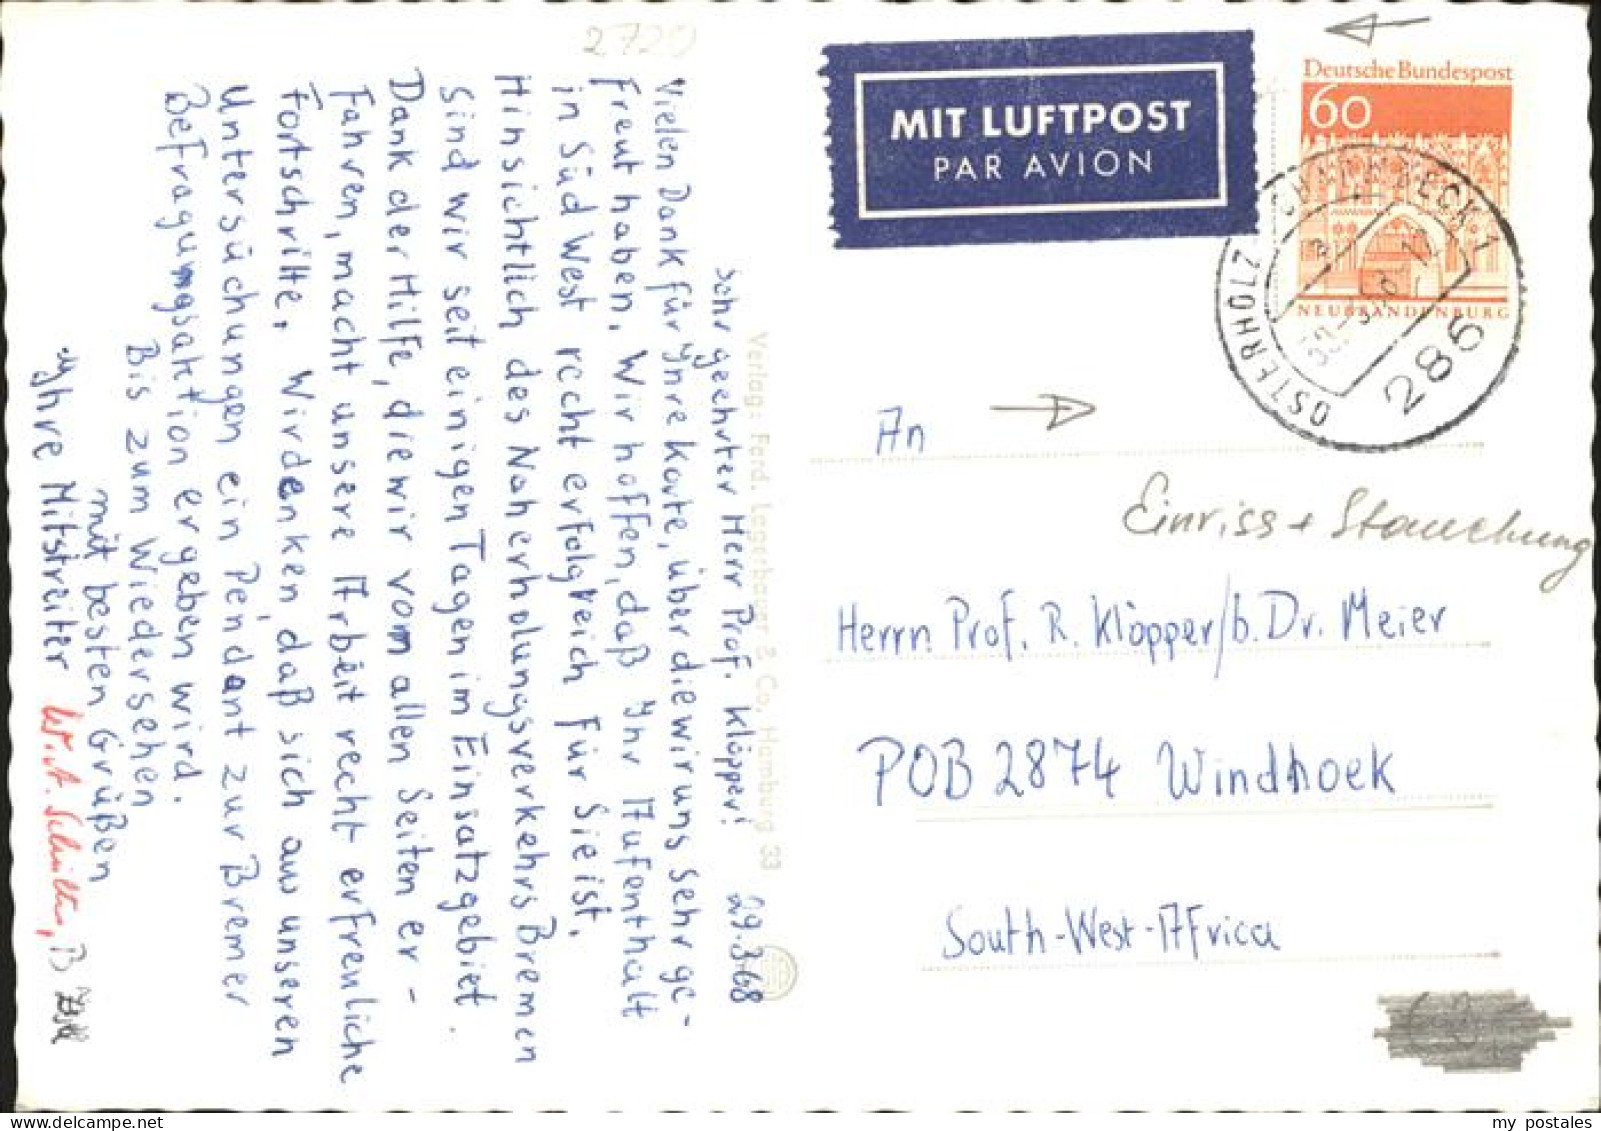 2720
MIT LUFTPOST
PAR AVION
Deutsche Bundespost
60
NEUBRANDENBURG
OSTERHOLZ-SCHARMBECK 1
a
286
29.3.68
Sehr geehrter Herr Prof. Klöpper!
Vielen Dank für Ihre Karte, über die wir uns sehr ge-
freut haben. Wir hoffen, daß Ihr Aufenthalt
in Süd West recht erfolgreich für Sie ist.
Hinsichtlich des Naherholungsverkehrs Bremen
sind wir seit einigen Tagen im Einsatzgebiet.
Dank der Hilfe, die wir von allen Seiten er-
fahren, macht unsere Arbeit recht erfreuliche
Fortschritte. Wir denken, daß sich aus unseren
Untersuchungen ein Pendant zur Bremer
Befragungsaktion ergeben wird.
Bis zum Wiedersehen
mit besten Grüßen
Ihre Mitstreiter
Verlag: Ferd. Lagerbauer & Co, Hamburg 33
An
Einriss + Stauchung
Herrn Prof. R. Klöpper/b. Dr. Meier
POB 2874 Windhoek
South-West-Africa
my postales